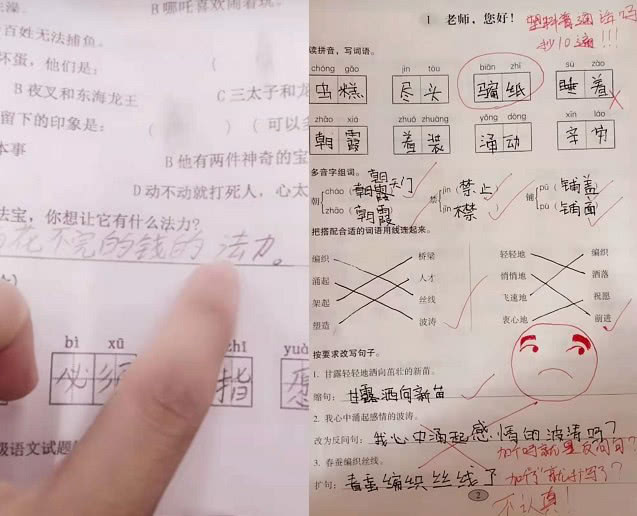 澡。 B哪吒喜欢闹着玩。
百姓无法捕鱼。
坏蛋，他们是： (
B 夜叉和东海龙王 C 三太子和龙
留下的印象是： ( ) (可以多
本事 B他有两件神奇的宝
D动不动就打死人，心太
法宝，你想让它有什么法力?
花不完的钱的法力。
bì xū zhǐ yuà
必 须 指 愿
级语文试题
1 老师，您好！ 塑料普通话吗
抄10遍!!!
读拼音，写词语。
chóng gāo jìn tóu biān zhī sù zào
虫糕 尽头 骗纸 睡着
zhāo xiá zhuó zhuāng yǒng dòng xīn láo
朝霞 着装 涌动 辛劳
多音字组词。
朝 cháo (朝天门) 禁 jìn (禁止) 铺 pū (铺盖)
zhāo (朝霞) jīn pù (铺面)
把搭配合适的词语用线连起来。
编织 桥梁 轻轻地 编织
涌起 人才 悄悄地 洒落
架起 丝线 飞速地 祝愿
塑造 波涛 衷心地 前进
按要求改写句子。
1. 甘露轻轻地洒向茁壮的新苗。
缩句：甘露洒向新苗
2. 我心中涌起感情的波涛。
改为反问句：我心中涌起感情的波涛吗?
加个吗就是反问句?
3. 春蚕编织丝线。
扩句：春蚕编织丝线了
加个了就扩写了?
不认真!
2